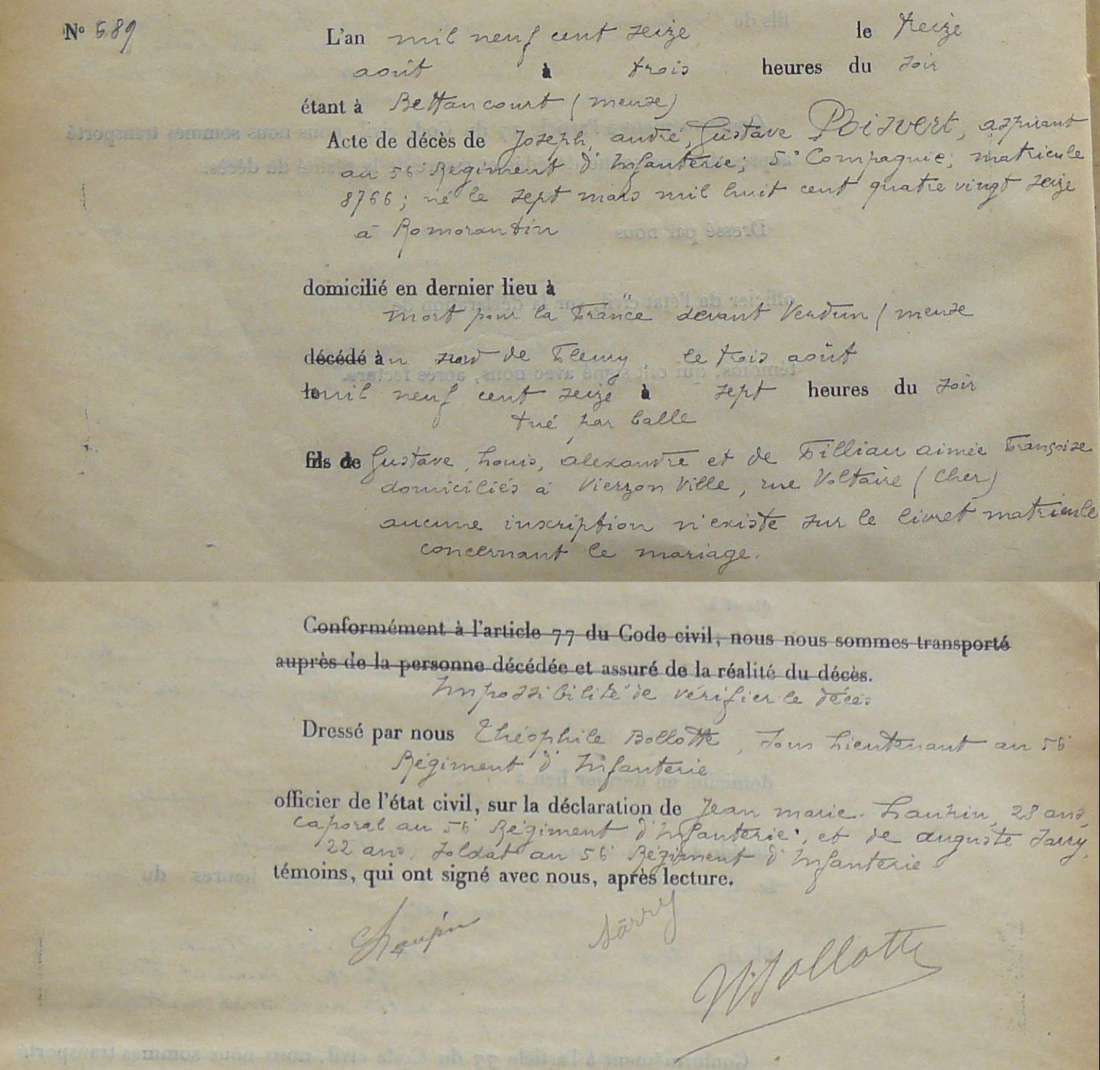 N° 589
L'an mil neuf cent seize le treize
août à trois heures du soir
étant à Bettancourt (meuse)
Acte de décès de Joseph, andré, Gustave Poisvert, aspirant
au 56 Régiment d'Infanterie; 5e Compagnie; matricule
8766; né le sept mars mil huit cent quatre vingt seize
à Romorantin
domicilié en dernier lieu à
mort pour la France devant Verdun (meuse
décédé à au nord de Fleury le trois août
le mil neuf cent seize à sept heures du soir
tué par balle
fils de Gustave, Louis, alexandre et de Filliau aimée Françoise
domiciliés à Vierzon Ville, rue Voltaire (Cher)
aucune inscription n'existe sur le livret matricule
concernant le mariage.
Conformément à l'article 77 du Code civil, nous nous sommes transporté
auprès de la personne décédée et assuré de la réalité du décès.
Impossibilité de vérifier le décès
Dressé par nous Théophile Bollotte, Sous Lieutenant au 56
Régiment d'Infanterie
officier de l'état civil, sur la déclaration de Jean marie 28 ans,
Caporal au 56 Régiment d'Infanterie, et de auguste Sarry,
22 ans, Soldat au 56 Régiment d'Infanterie
témoins, qui ont signé avec nous, après lecture.
Sarry
Bollotte